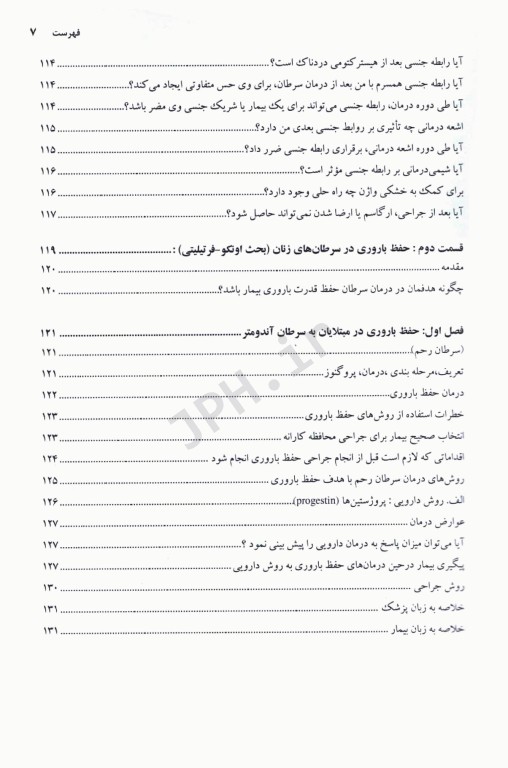 فهرست ۷
آیا رابطه جنسی بعد از هیسترکتومی دردناک است؟ ۱۱۴
آیا رابطه جنسی همسرم با من بعد از درمان سرطان، برای وی حس متفاوتی ایجاد می‌کند؟ ۱۱۴
آیا طی دوره درمان، رابطه جنسی می‌تواند برای یک بیمار یا شریک جنسی وی مضر باشد؟ ۱۱۴
اشعه درمانی چه تأثیری بر روابط جنسی بعدی من دارد؟ ۱۱۵
آیا طی دوره اشعه درمانی، برقراری رابطه جنسی ضرر داد؟ ۱۱۵
آیا شیمی‌درمانی بر رابطه جنسی مؤثر است؟ ۱۱۶
برای کمک به خشکی واژن چه راه حلی وجود دارد؟ ۱۱۶
آیا بعد از جراحی، ارگاسم یا ارضا شدن نمی‌تواند حاصل شود؟ ۱۱۷
قسمت دوم : حفظ باروری در سرطان‌های زنان (بحث اونکو-فرتیلیتی) : ۱۱۹
مقدمه ۱۲۰
چگونه هدفمان در درمان سرطان حفظ قدرت باروری بیمار باشد؟ ۱۲۰
فصل اول: حفظ باروری در مبتلایان به سرطان آندومتر ۱۲۱
(سرطان رحم) ۱۲۱
تعریف،مرحله بندی ،درمان، پروگنوز ۱۲۱
درمان حفظ باروری ۱۲۲
خطرات استفاده از روش‌های حفظ باروری ۱۲۳
انتخاب صحیح بیمار برای جراحی محافظه کارانه ۱۲۳
اقداماتی که لازم است قبل از انجام جراحی حفظ باروری انجام شود ۱۲۴
روش‌های درمان سرطان رحم با هدف حفظ باروری ۱۲۵
الف. روش دارویی : پروژستین‌ها (progestin) ۱۲۶
عوارض درمان ۱۲۷
آیا می‌توان میزان پاسخ به درمان دارویی را پیش بینی نمود ؟ ۱۲۷
پیگیری بیمار درحین درمان‌های حفظ باروری به روش دارویی ۱۲۷
روش جراحی ۱۳۰
خلاصه به زبان پزشک ۱۳۱
خلاصه به زبان بیمار ۱۳۱
JPH.ir